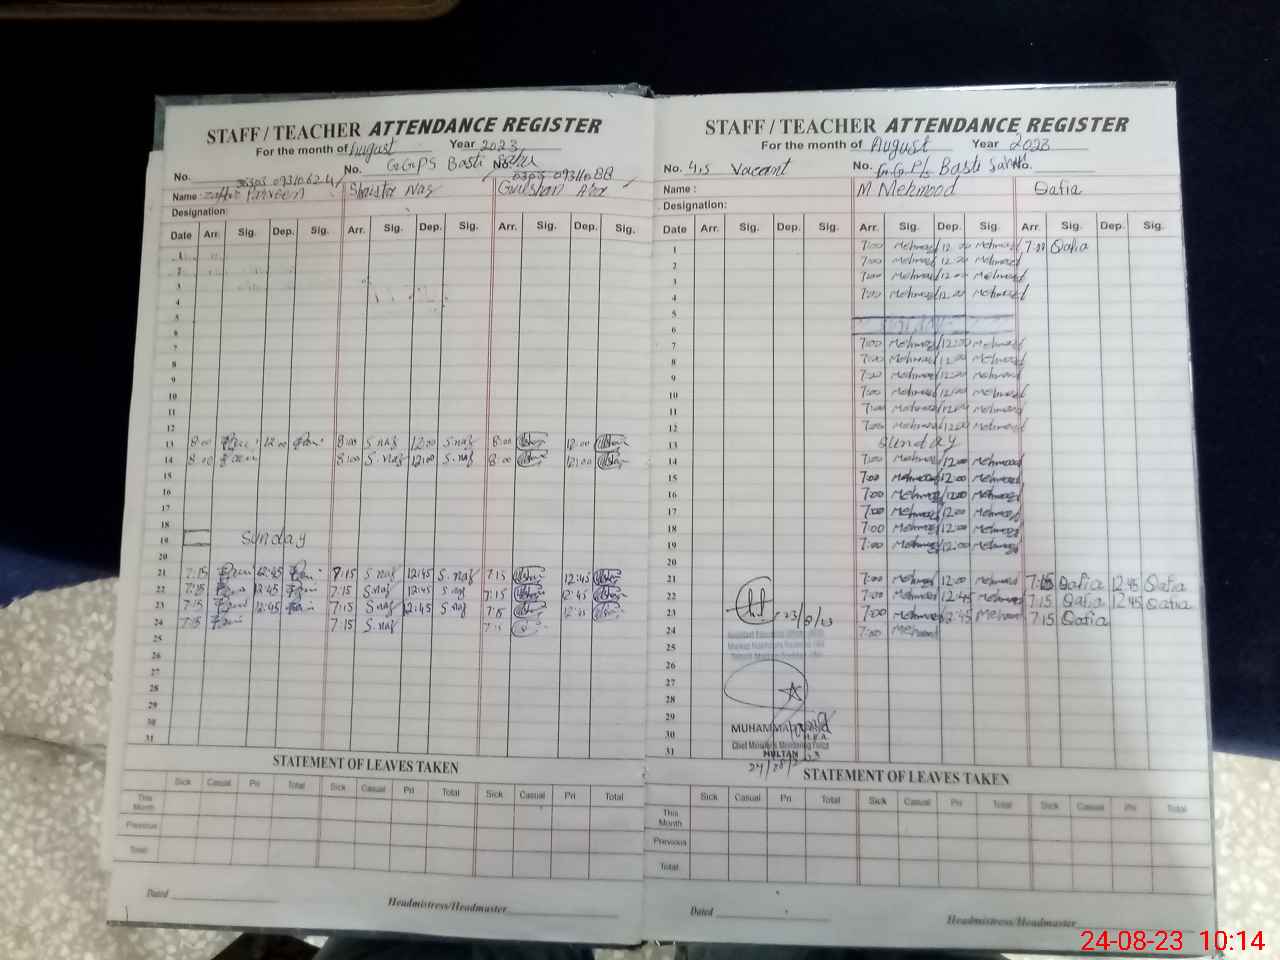 STAFF / TEACHER ATTENDANCE REGISTER
For the month of August Year 2023
No. No. GGPS Basti No.
Name : Parveen Shaista Naz Gulshan
Designation:
Date Arr. Sig. Dep. Sig. Arr. Sig. Dep. Sig. Arr. Sig. Dep. Sig.
1
2
3
4
5
6
7
8
9
10
11
12
13 8:00 12:00 8:00 S.naz 12:00 S.naz 8:00 12:00
14 8:00 8:00 S.naz 12:00 S.naz 8:00 12:00
15
16
17
18
19 Sunday
20
21 7:15 12:45 7:15 S.naz 12:45 S.naz 7:15 12:45
22 7:15 12:45 7:15 S.naz 12:45 S.naz 7:15 12:45
23 7:15 12:45 7:15 S.naz 12:45 S.naz 7:15 12:45
24 7:15 7:15 S.naz 7:15
25
26
27
28
29
30
31
STATEMENT OF LEAVES TAKEN
Sick Casual Pri Total Sick Casual Pri Total Sick Casual Pri Total
This Month
Previous
Total
Dated Headmistress/Headmaster
STAFF / TEACHER ATTENDANCE REGISTER
For the month of August Year 2023
No. 4,5 Vacant No. G.G.P/S Basti No.
Name : M Mehmood Qafia
Designation:
Date Arr. Sig. Dep. Sig. Arr. Sig. Dep. Sig. Arr. Sig. Dep. Sig.
1 7:00 Mehmood 12:00 Mehmood Qafia
2 7:00 Mehmood 12:00 Mehmood
3 7:00 Mehmood 12:00 Mehmood
4 7:00 Mehmood 12:00 Mehmood
5
6
7 7:00 Mehmood 12:00 Mehmood
8 7:00 Mehmood 12:00 Mehmood
9 7:00 Mehmood 12:00 Mehmood
10 7:00 Mehmood 12:00 Mehmood
11 7:00 Mehmood 12:00 Mehmood
12 7:00 Mehmood 12:00 Mehmood
13 Sunday
14 7:00 Mehmood 12:00 Mehmood
15 7:00 Mehmood 12:00 Mehmood
16 7:00 Mehmood 12:00 Mehmood
17 7:00 Mehmood 12:00 Mehmood
18 7:00 Mehmood 12:00 Mehmood
19 7:00 Mehmood 12:00 Mehmood
20
21 7:00 Mehmood 12:00 Mehmood 7:15 Qafia 12:45 Qafia
22 7:00 Mehmood 12:45 Mehmood 7:15 Qafia 12:45 Qafia
23 23/8/23 7:00 Mehmood 12:45 Mehmood 7:15 Qafia
24 7:00 Mehmood
25
26
27
28
29
30 MUHAMMAD
31 Chief Minister's Monitoring Force
MULTAN
STATEMENT OF LEAVES TAKEN
Sick Casual Pri Total Sick Casual Pri Total Sick Casual Pri Total
This Month
Previous
Total
Dated Headmistress/Headmaster
24-08-23 10:14